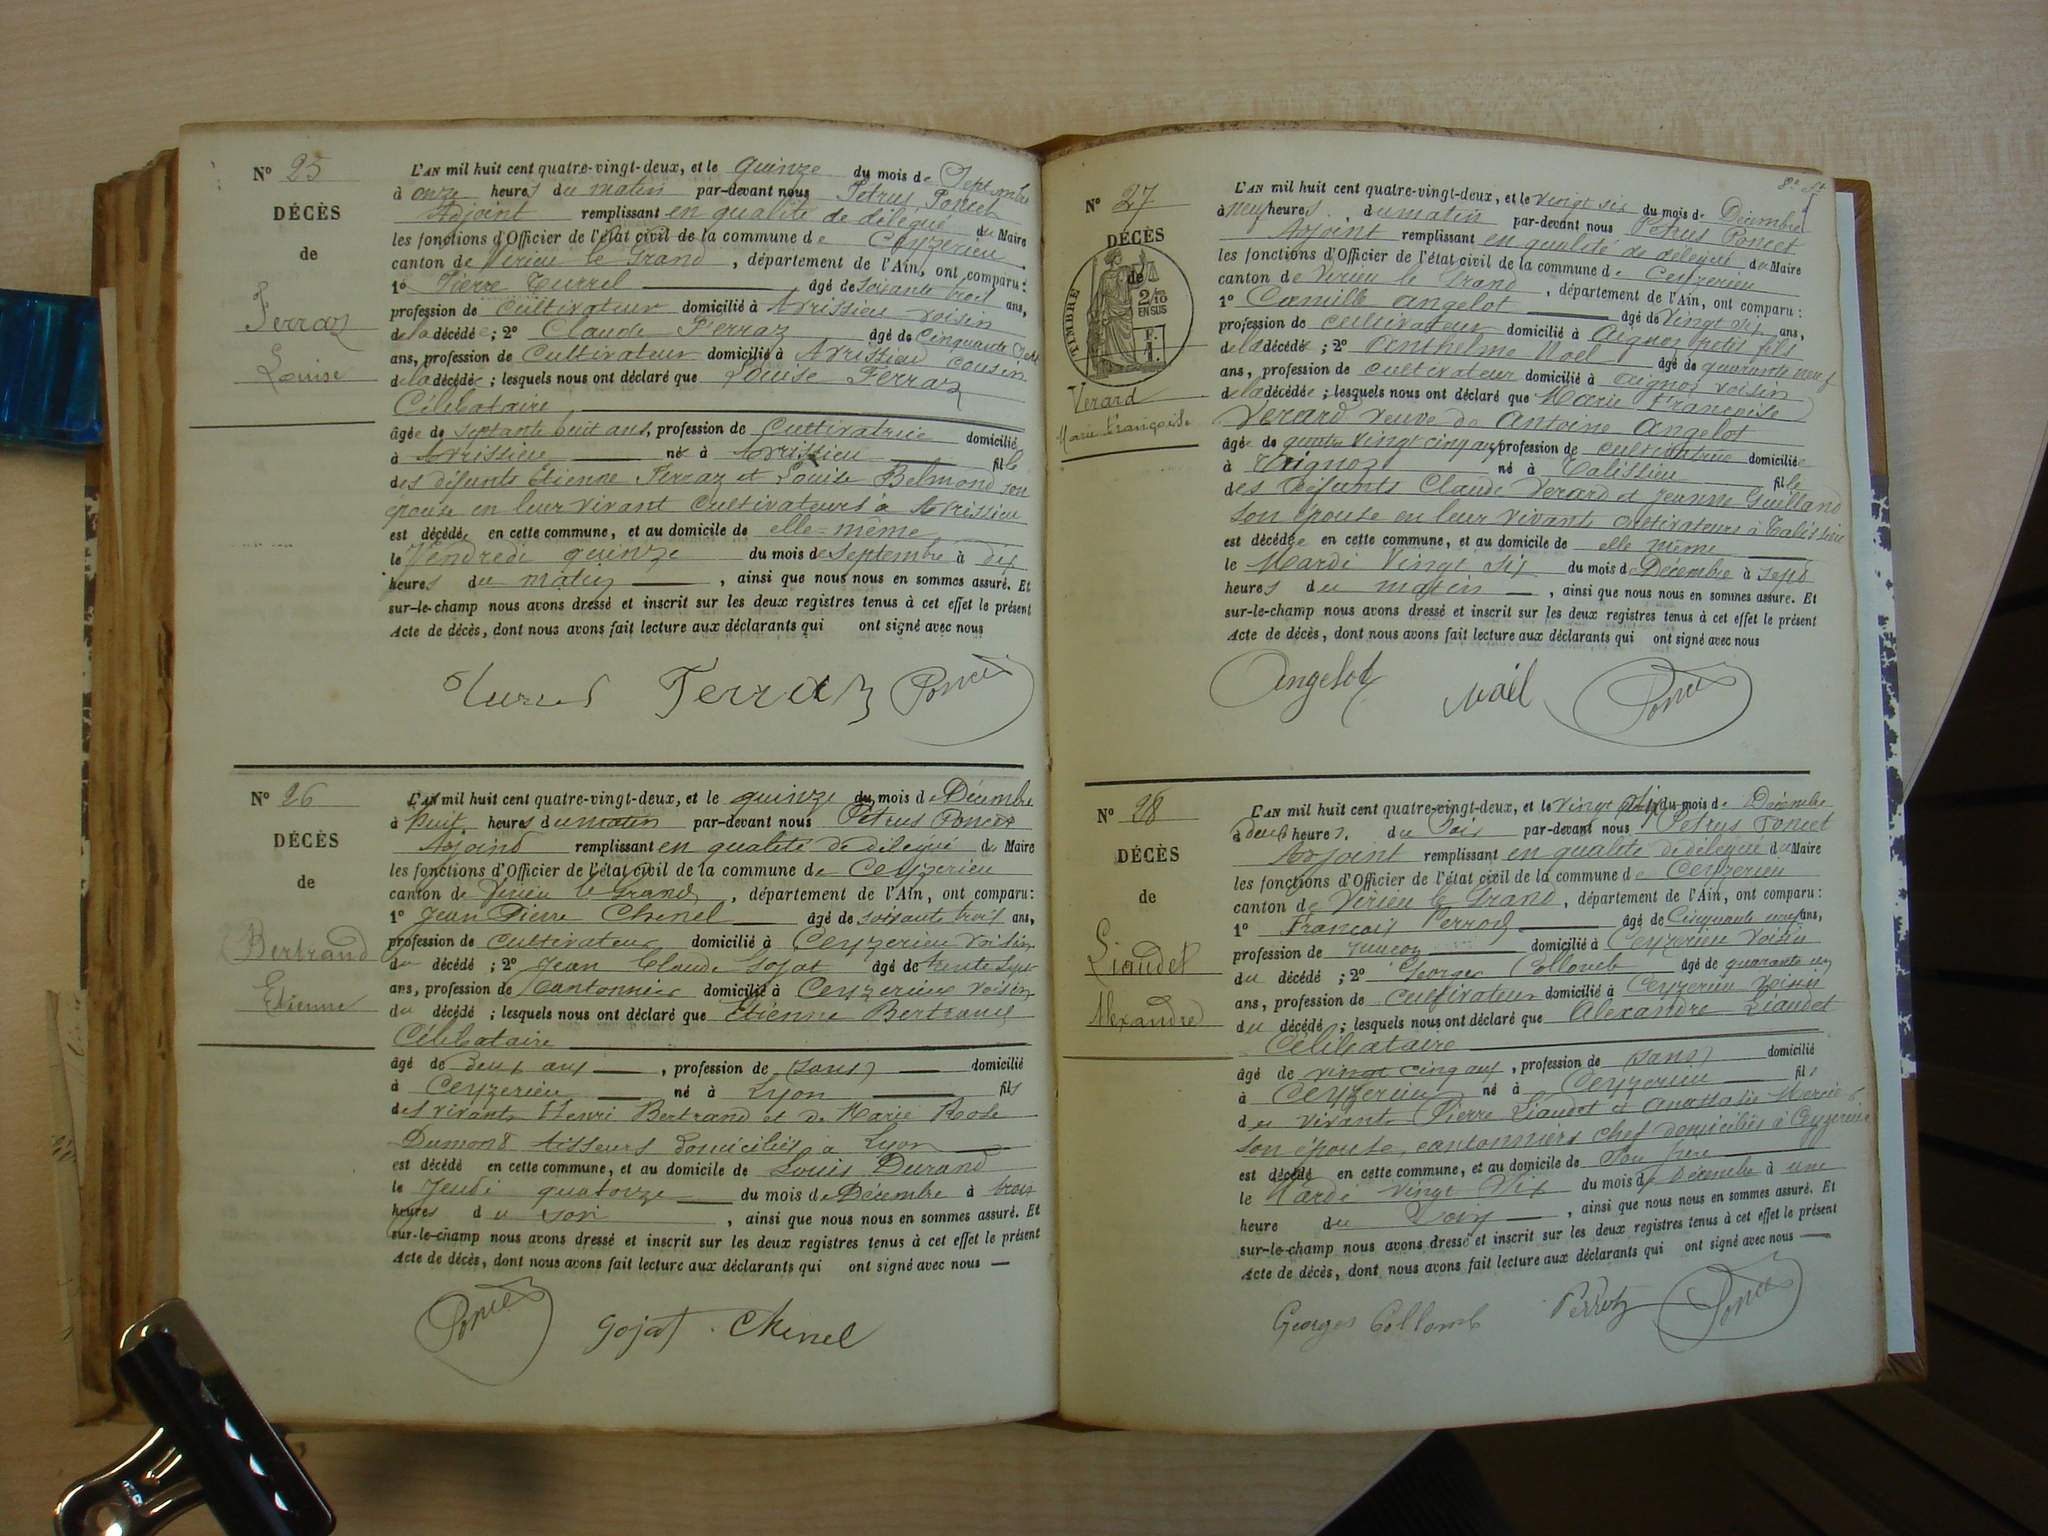 N° 25
DÉCÈS
de
Ferraz
Louise
L'AN mil huit cent quatre-vingt-deux, et le quinze du mois de Septembre
à onze heures du matin par-devant nous Petrus Poncet
Adjoint remplissant en qualité de délégué du Maire
les fonctions d'Officier de l'état civil de la commune de Ceyzerieu
canton de Virieu le Grand, département de l'Ain, ont comparu:
1° Pierre Turrel âgé de soixante trois ans,
profession de cultivateur domicilié à Avrissieu voisin
de la décédée; 2° Claude Ferraz âgé de Cinquante
ans, profession de Cultivateur domicilié à Avrissieu cousin
de la décédée; lesquels nous ont déclaré que Louise Ferraz
Célibataire
âgée de septante huit ans, profession de Cultivatrice domicilié
à Avrissieu né à Avrissieu fille
des défunts Etienne Ferraz et Louise Belmond son
épouse en leur vivant cultivateurs à Avrissieu
est décédée en cette commune, et au domicile de elle-même
le Vendredi quinze du mois de Septembre à dix
heures du matin, ainsi que nous nous en sommes assuré. Et
sur-le-champ nous avons dressé et inscrit sur les deux registres tenus à cet effet le présent
Acte de décès, dont nous avons fait lecture aux déclarants qui ont signé avec nous
Turrel Ferraz Poncet
N° 26
DÉCÈS
de
Bertrand
Etienne
L'AN mil huit cent quatre-vingt-deux, et le quinze du mois de Décembre
à huit heures du matin par-devant nous Petrus Poncet
Adjoint remplissant en qualité de délégué du Maire
les fonctions d'Officier de l'état civil de la commune de Ceyzerieu
canton de Virieu le Grand, département de l'Ain, ont comparu:
1° Jean Pierre Chenel âgé de soixante trois ans,
profession de cultivateur domicilié à Ceyzerieu voisin
du décédé; 2° Jean Claude Gojat âgé de trente sept
ans, profession de Cantonnier domicilié à Ceyzerieu voisin
du décédé; lesquels nous ont déclaré que Etienne Bertrand
Célibataire
âgé de deux ans, profession de (sans) domicilié
à Ceyzerieu né à Lyon fils
des vivants Henri Bertrand et de Marie Rose
Dumond tisseurs domiciliés à Lyon
est décédé en cette commune, et au domicile de Louis Durand
le Jeudi quatorze du mois de Décembre à trois
heures du soir, ainsi que nous nous en sommes assuré. Et
sur-le-champ nous avons dressé et inscrit sur les deux registres tenus à cet effet le présent
Acte de décès, dont nous avons fait lecture aux déclarants qui ont signé avec nous
Poncet Gojat Chenel
N° 27
DÉCÈS
de
TIMBRE
2/10
EN SUS
F.
1.
Verard
Marie Françoise
L'AN mil huit cent quatre-vingt-deux, et le vingt six du mois de Décembre
à neuf heures du matin par-devant nous Petrus Poncet
Adjoint remplissant en qualité de délégué du Maire
les fonctions d'Officier de l'état civil de la commune de Ceyzerieu
canton de Virieu le Grand, département de l'Ain, ont comparu:
1° Camille Angelot âgé de vingt six ans,
profession de cultivateur domicilié à Aignoz petit fils
de la décédée; 2° Anthelme Noël âgé de quarante neuf
ans, profession de cultivateur domicilié à Aignoz voisin
de la décédée; lesquels nous ont déclaré que Marie Françoise
Verard veuve de Antoine Angelot
âgée de quatre vingt cinq ans, profession de cultivatrice domiciliée
à Aignoz né à Talissieu fille
des défunts Claude Verard et Jeanne Guilland
son épouse en leur vivant cultivateurs à Talissieu
est décédée en cette commune, et au domicile de elle même
le Mardi Vingt Six du mois de Décembre à sept
heures du matin, ainsi que nous nous en sommes assuré. Et
sur-le-champ nous avons dressé et inscrit sur les deux registres tenus à cet effet le présent
Acte de décès, dont nous avons fait lecture aux déclarants qui ont signé avec nous
Angelot Noël Poncet
N° 28
DÉCÈS
de
Liaudet
Alexandre
L'AN mil huit cent quatre-vingt-deux, et le vingt six du mois de Décembre
à deux heures du soir par-devant nous Petrus Poncet
Adjoint remplissant en qualité de délégué du Maire
les fonctions d'Officier de l'état civil de la commune de Ceyzerieu
canton de Virieu le Grand, département de l'Ain, ont comparu:
1° François Perrod âgé de Cinquante neuf ans,
profession de maçon domicilié à Ceyzerieu voisin
du décédé; 2° Georges Collomb âgé de quarante un
ans, profession de cultivateur domicilié à Ceyzerieu voisin
du décédé; lesquels nous ont déclaré que Alexandre Liaudet
Célibataire
âgé de vingt cinq ans, profession de (sans) domicilié
à Ceyzerieu né à Ceyzerieu fils
du vivant Pierre Liaudet et Anastasie Marie
son épouse, cantonniers chef domiciliés à Ceyzerieu
est décédé en cette commune, et au domicile de son père
le Mardi vingt Six du mois de Décembre à une
heure du soir, ainsi que nous nous en sommes assuré. Et
sur-le-champ nous avons dressé et inscrit sur les deux registres tenus à cet effet le présent
Acte de décès, dont nous avons fait lecture aux déclarants qui ont signé avec nous
Georges Collomb Perrod Poncet